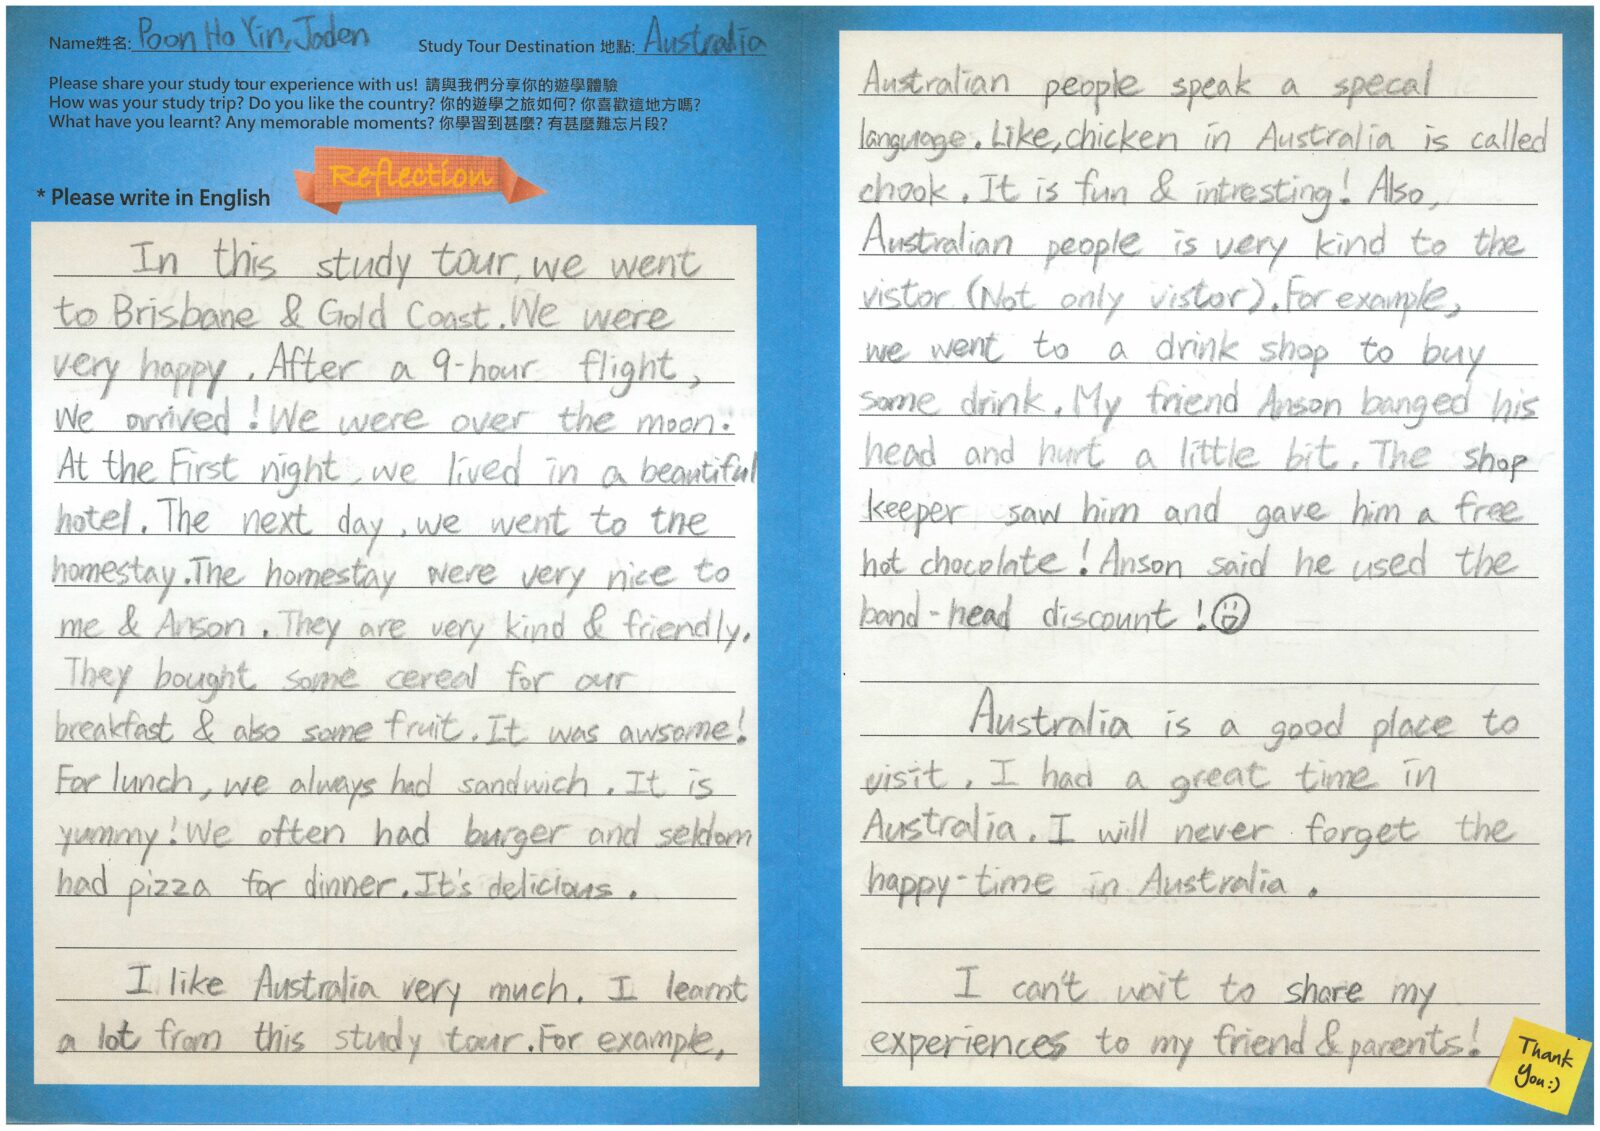 Name姓名: Poon Ho Yin, Jaden
Study Tour Destination 地點: Australia
Please share your study tour experience with us! 請與我們分享你的遊學體驗
How was your study trip? Do you like the country? 你的遊學之旅如何? 你喜歡這地方嗎?
What have you learnt? Any memorable moments? 你學習到甚麼? 有甚麼難忘片段?
Reflection
* Please write in English
In this study tour, we went
to Brisbane & Gold Coast. We were
very happy. After a 9-hour flight,
we arrived! We were over the moon.
At the First night, we lived in a beautiful
hotel. The next day, we went to the
homestay. The homestay were very nice to
me & Anson. They are very kind & friendly.
They bought some cereal for our
breakfast & also some fruit. It was awsome!
For lunch, we always had sandwich. It is
yummy! We often had burger and seldom
had pizza for dinner. It's delicious.
I like Australia very much. I learnt
a lot from this study tour. For example,
Australian people speak a specal
language. Like, chicken in Australia is called
chook. It is fun & intresting! Also,
Australian people is very kind to the
vistor (Not only vistor). For example,
we went to a drink shop to buy
some drink. My friend Anson banged his
head and hurt a little bit. The shop
keeper saw him and gave him a free
hot chocolate! Anson said he used the
band-head discount!
Australia is a good place to
visit. I had a great time in
Australia. I will never forget the
happy-time in Australia.
I can't wait to share my
experiences to my friend & parents!
Thank
You:)